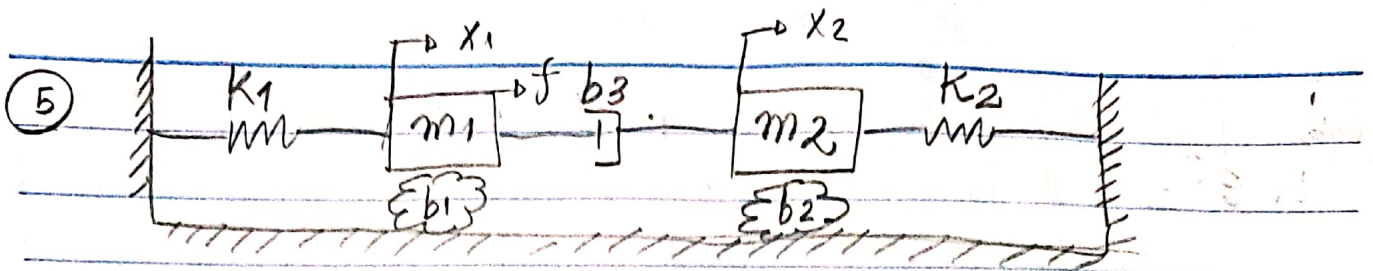 X1 X2
5 K1 f b3 K2
m1 m2
b1 b2